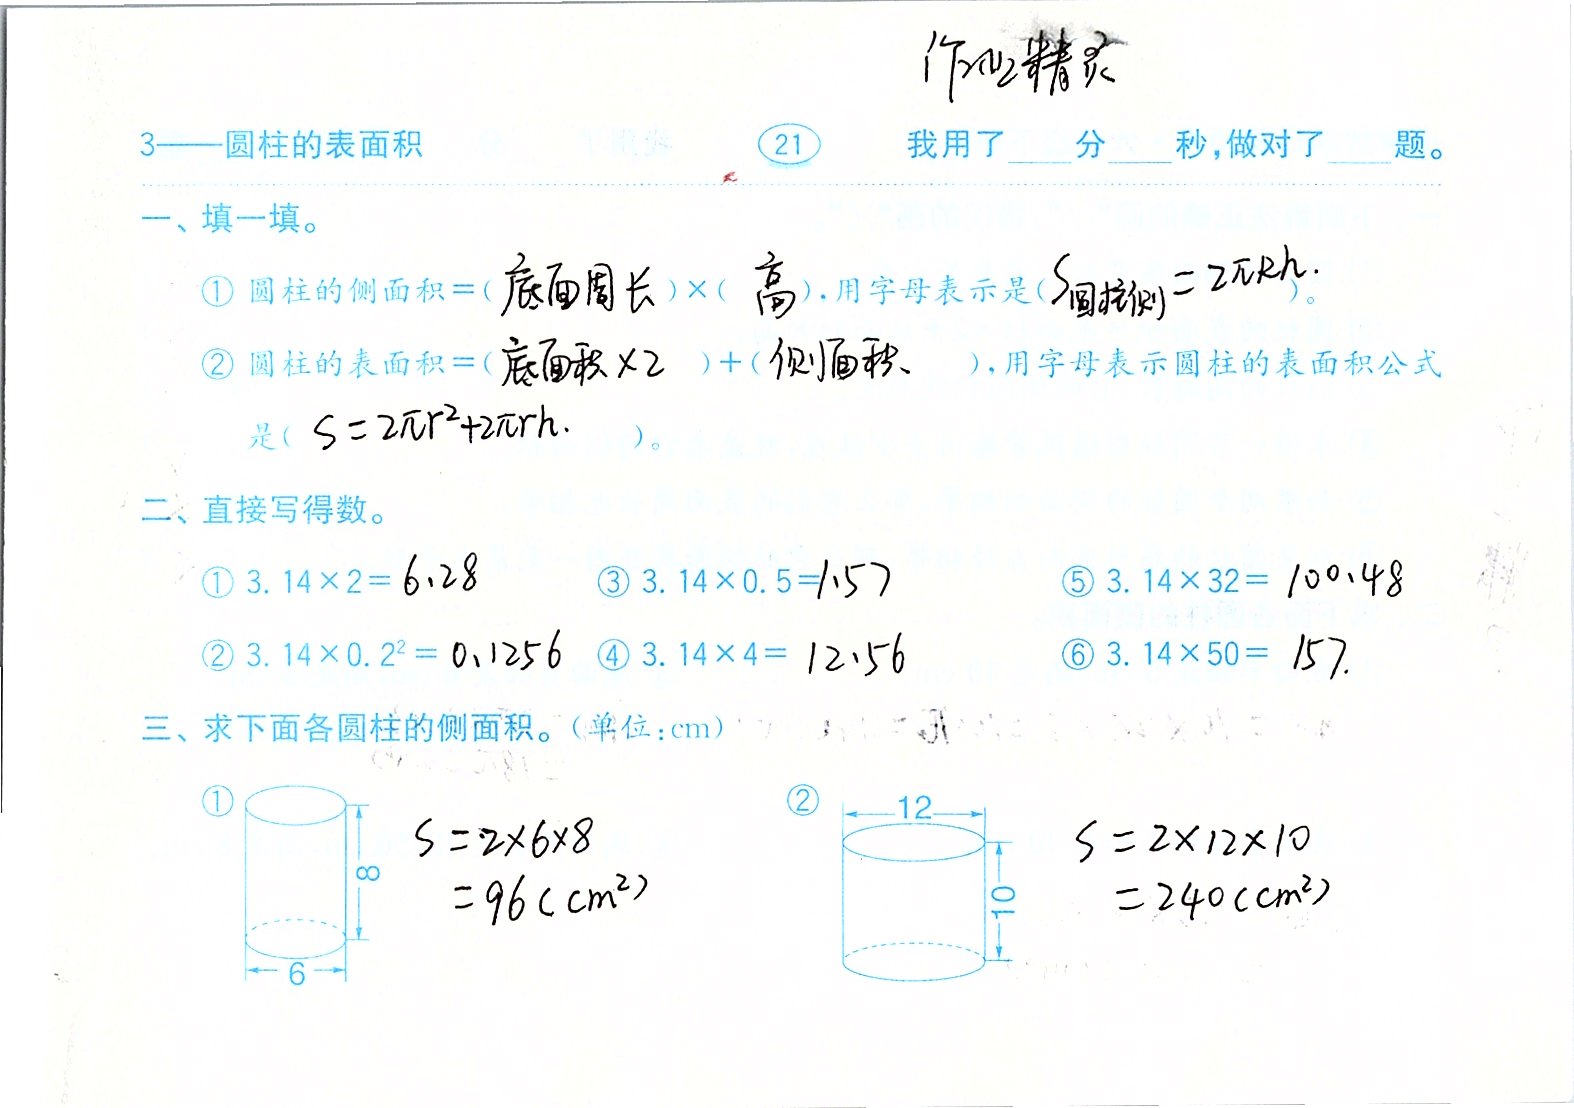 作业精灵
3——圆柱的表面积 21 我用了____分____秒,做对了____题。
一、填一填。
① 圆柱的侧面积=(底面周长)×(高).用字母表示是(S圆柱侧=2πRh.)。
② 圆柱的表面积=(底面积×2)+(侧面积、),用字母表示圆柱的表面积公式
是(S=2πr²+2πrh.)。
二、直接写得数。
① 3.14×2=6.28 ③ 3.14×0.5=1.57 ⑤ 3.14×32=100.48
② 3.14×0.2²=0.1256 ④ 3.14×4=12.56 ⑥ 3.14×50=157.
三、求下面各圆柱的侧面积。(单位:cm)
① 8 6 S=2×6×8
=96(cm²)
② 12 10 S=2×12×10
=240(cm²)